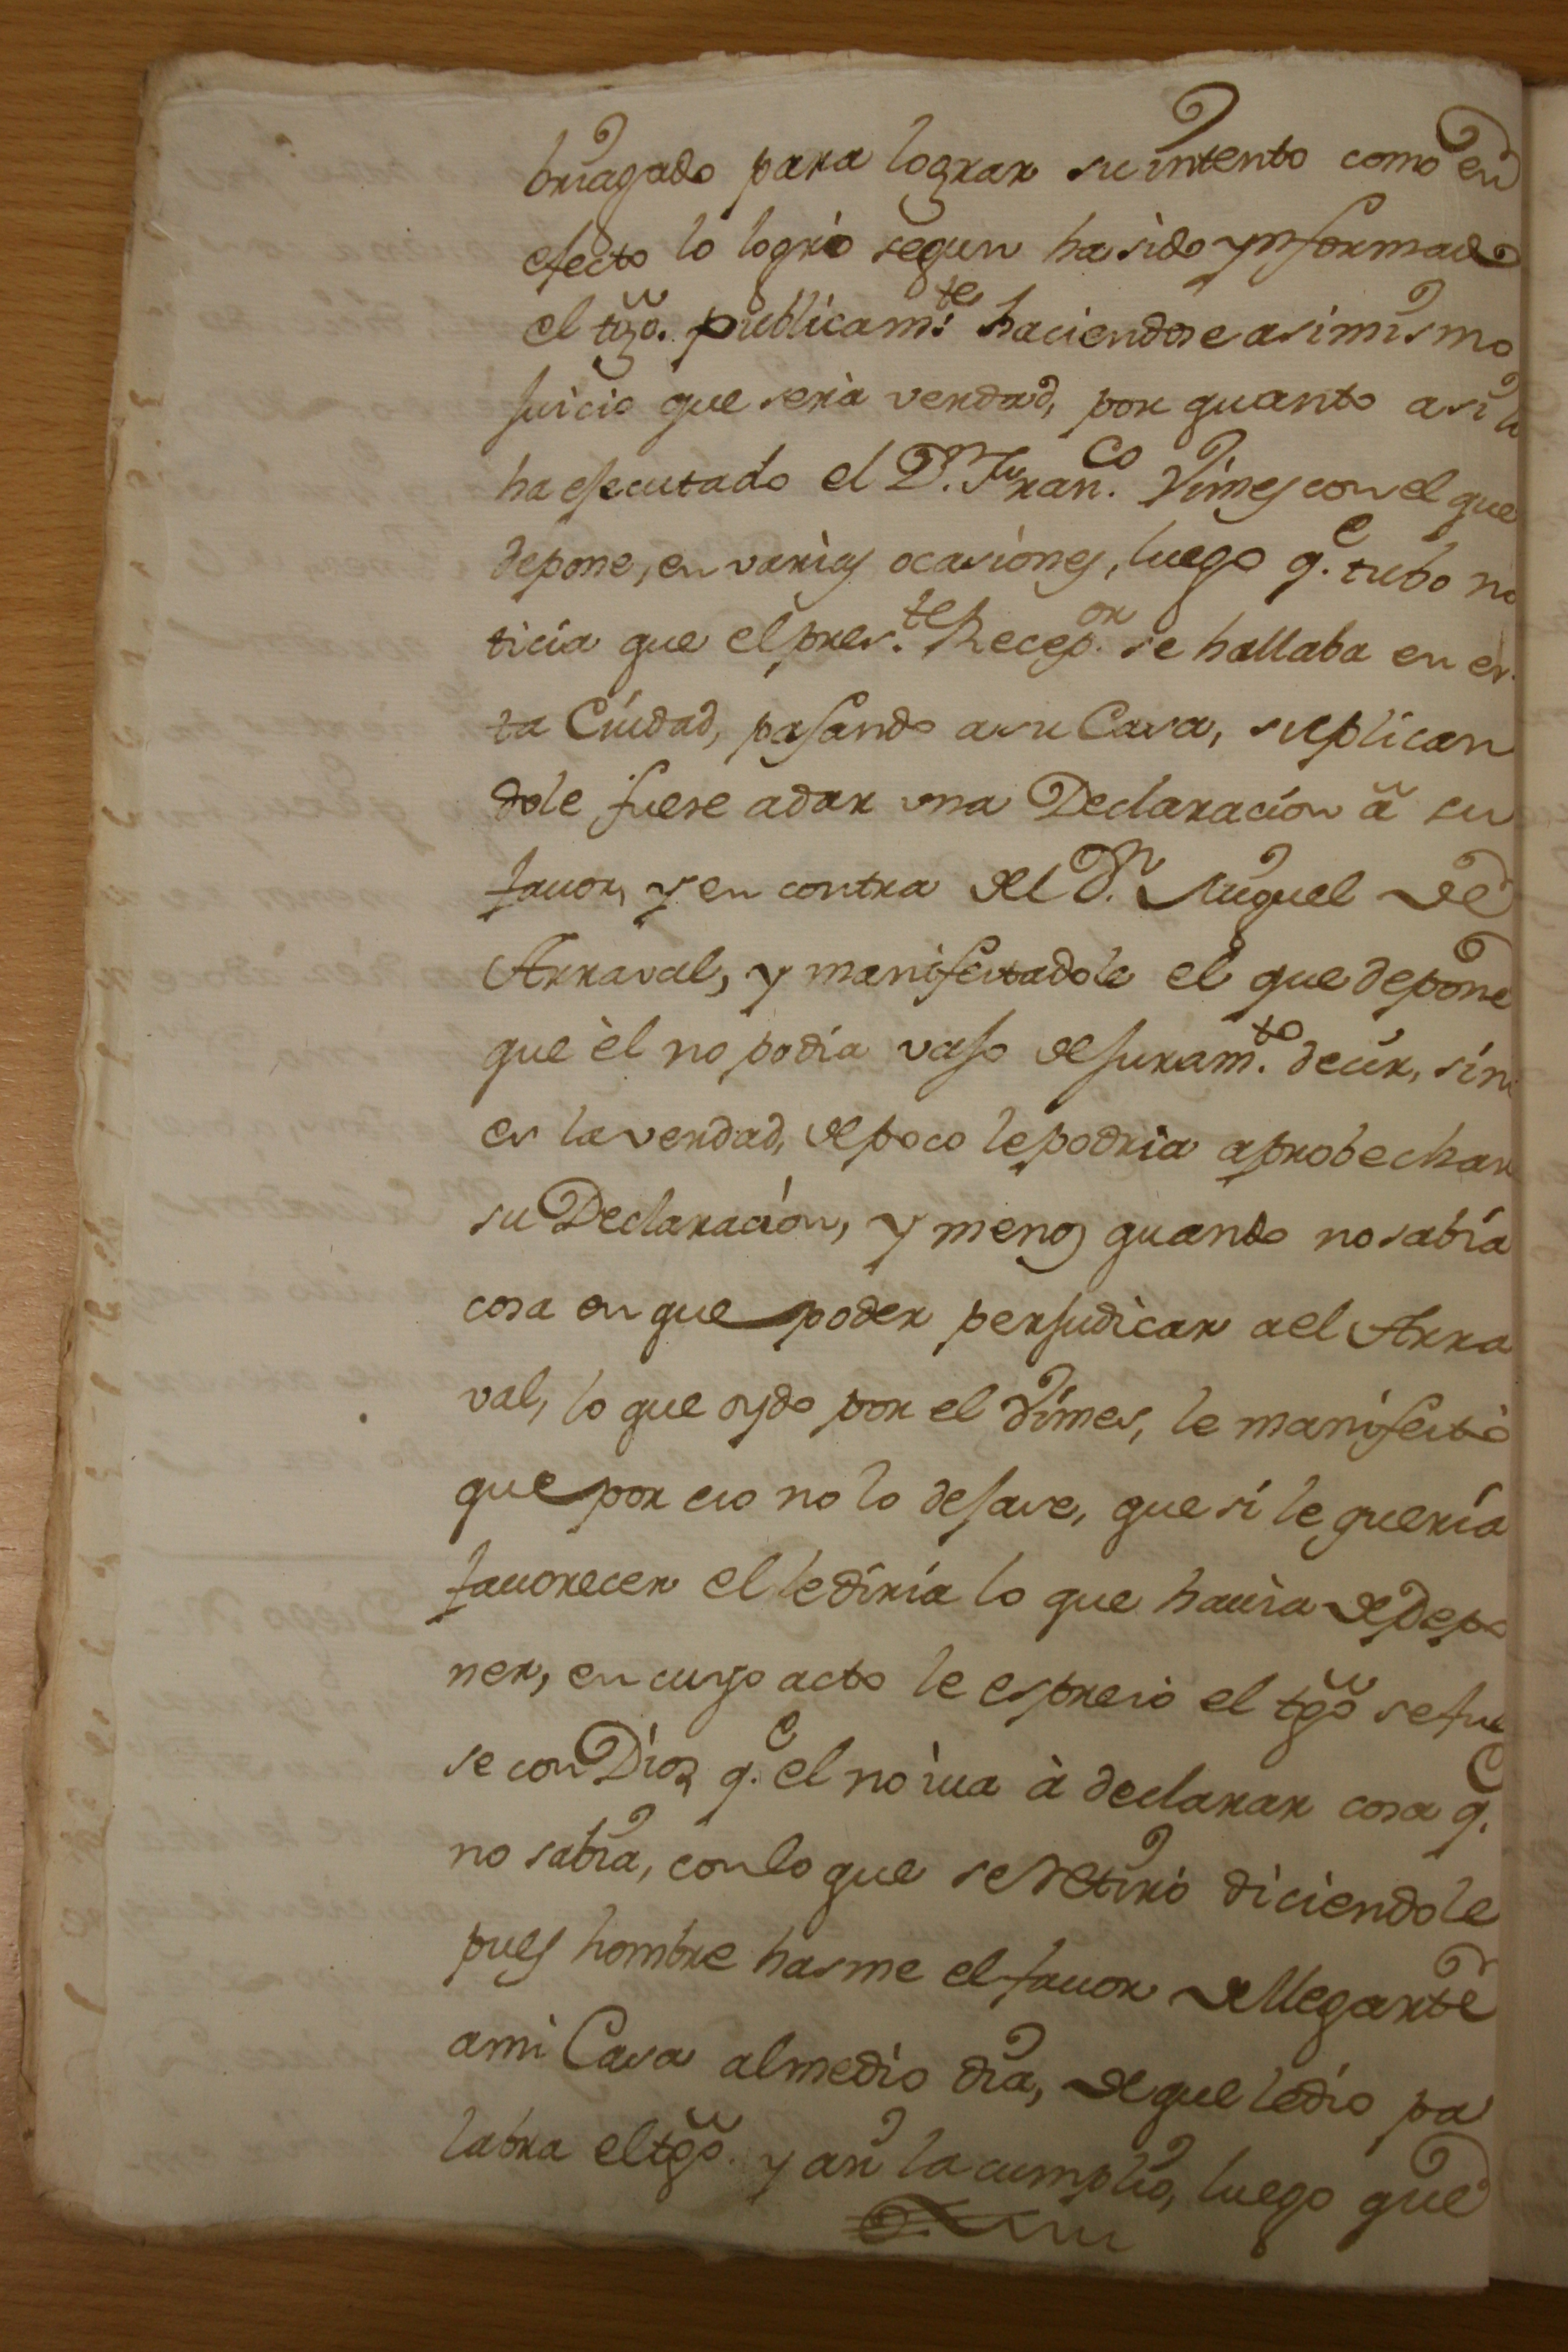 briagado para lograr su intento como en
efecto lo logrò segun ha sido ynformado
el tgo. publicam.te haciendose asimismo
Juicio que serìa verdad, por quanto asi lo
ha ejecutado el D.n Fran.co Vimes con el que
depone, en varias ocasiones, luego q.e tubo no
ticia que el pres.te Recep.or se hallaba en es
ta Ciudad, pasando a su Casa, suplican
dole fuese a dar una Declaracion ã su
favor, y en contra del D.n Miguel de
Arraval, y manifestadole el que depone
que èl no podia vajo de juram.to decir, sino
es la verdad, de poco le podria aprobechar
su Declaracion, y menos quando no sabia
cosa en que poder perjudicar a el Arra
val, lo que oydo por el Vimes, le manifestò
que por eso no lo dejase, que si le queria
favorecer el le diria lo que havia de depo
ner, en cuyo acto le espresò el tgo se fue
se con Dios q.e el no iva à declarar cosa q.e
no sabia, con lo que se retirò diciendole
pues hombre hasme el favor de llegarte
a mi Casa al medio dia, de que le dio pa
labra el tgo. y asi la cumplio, luego que